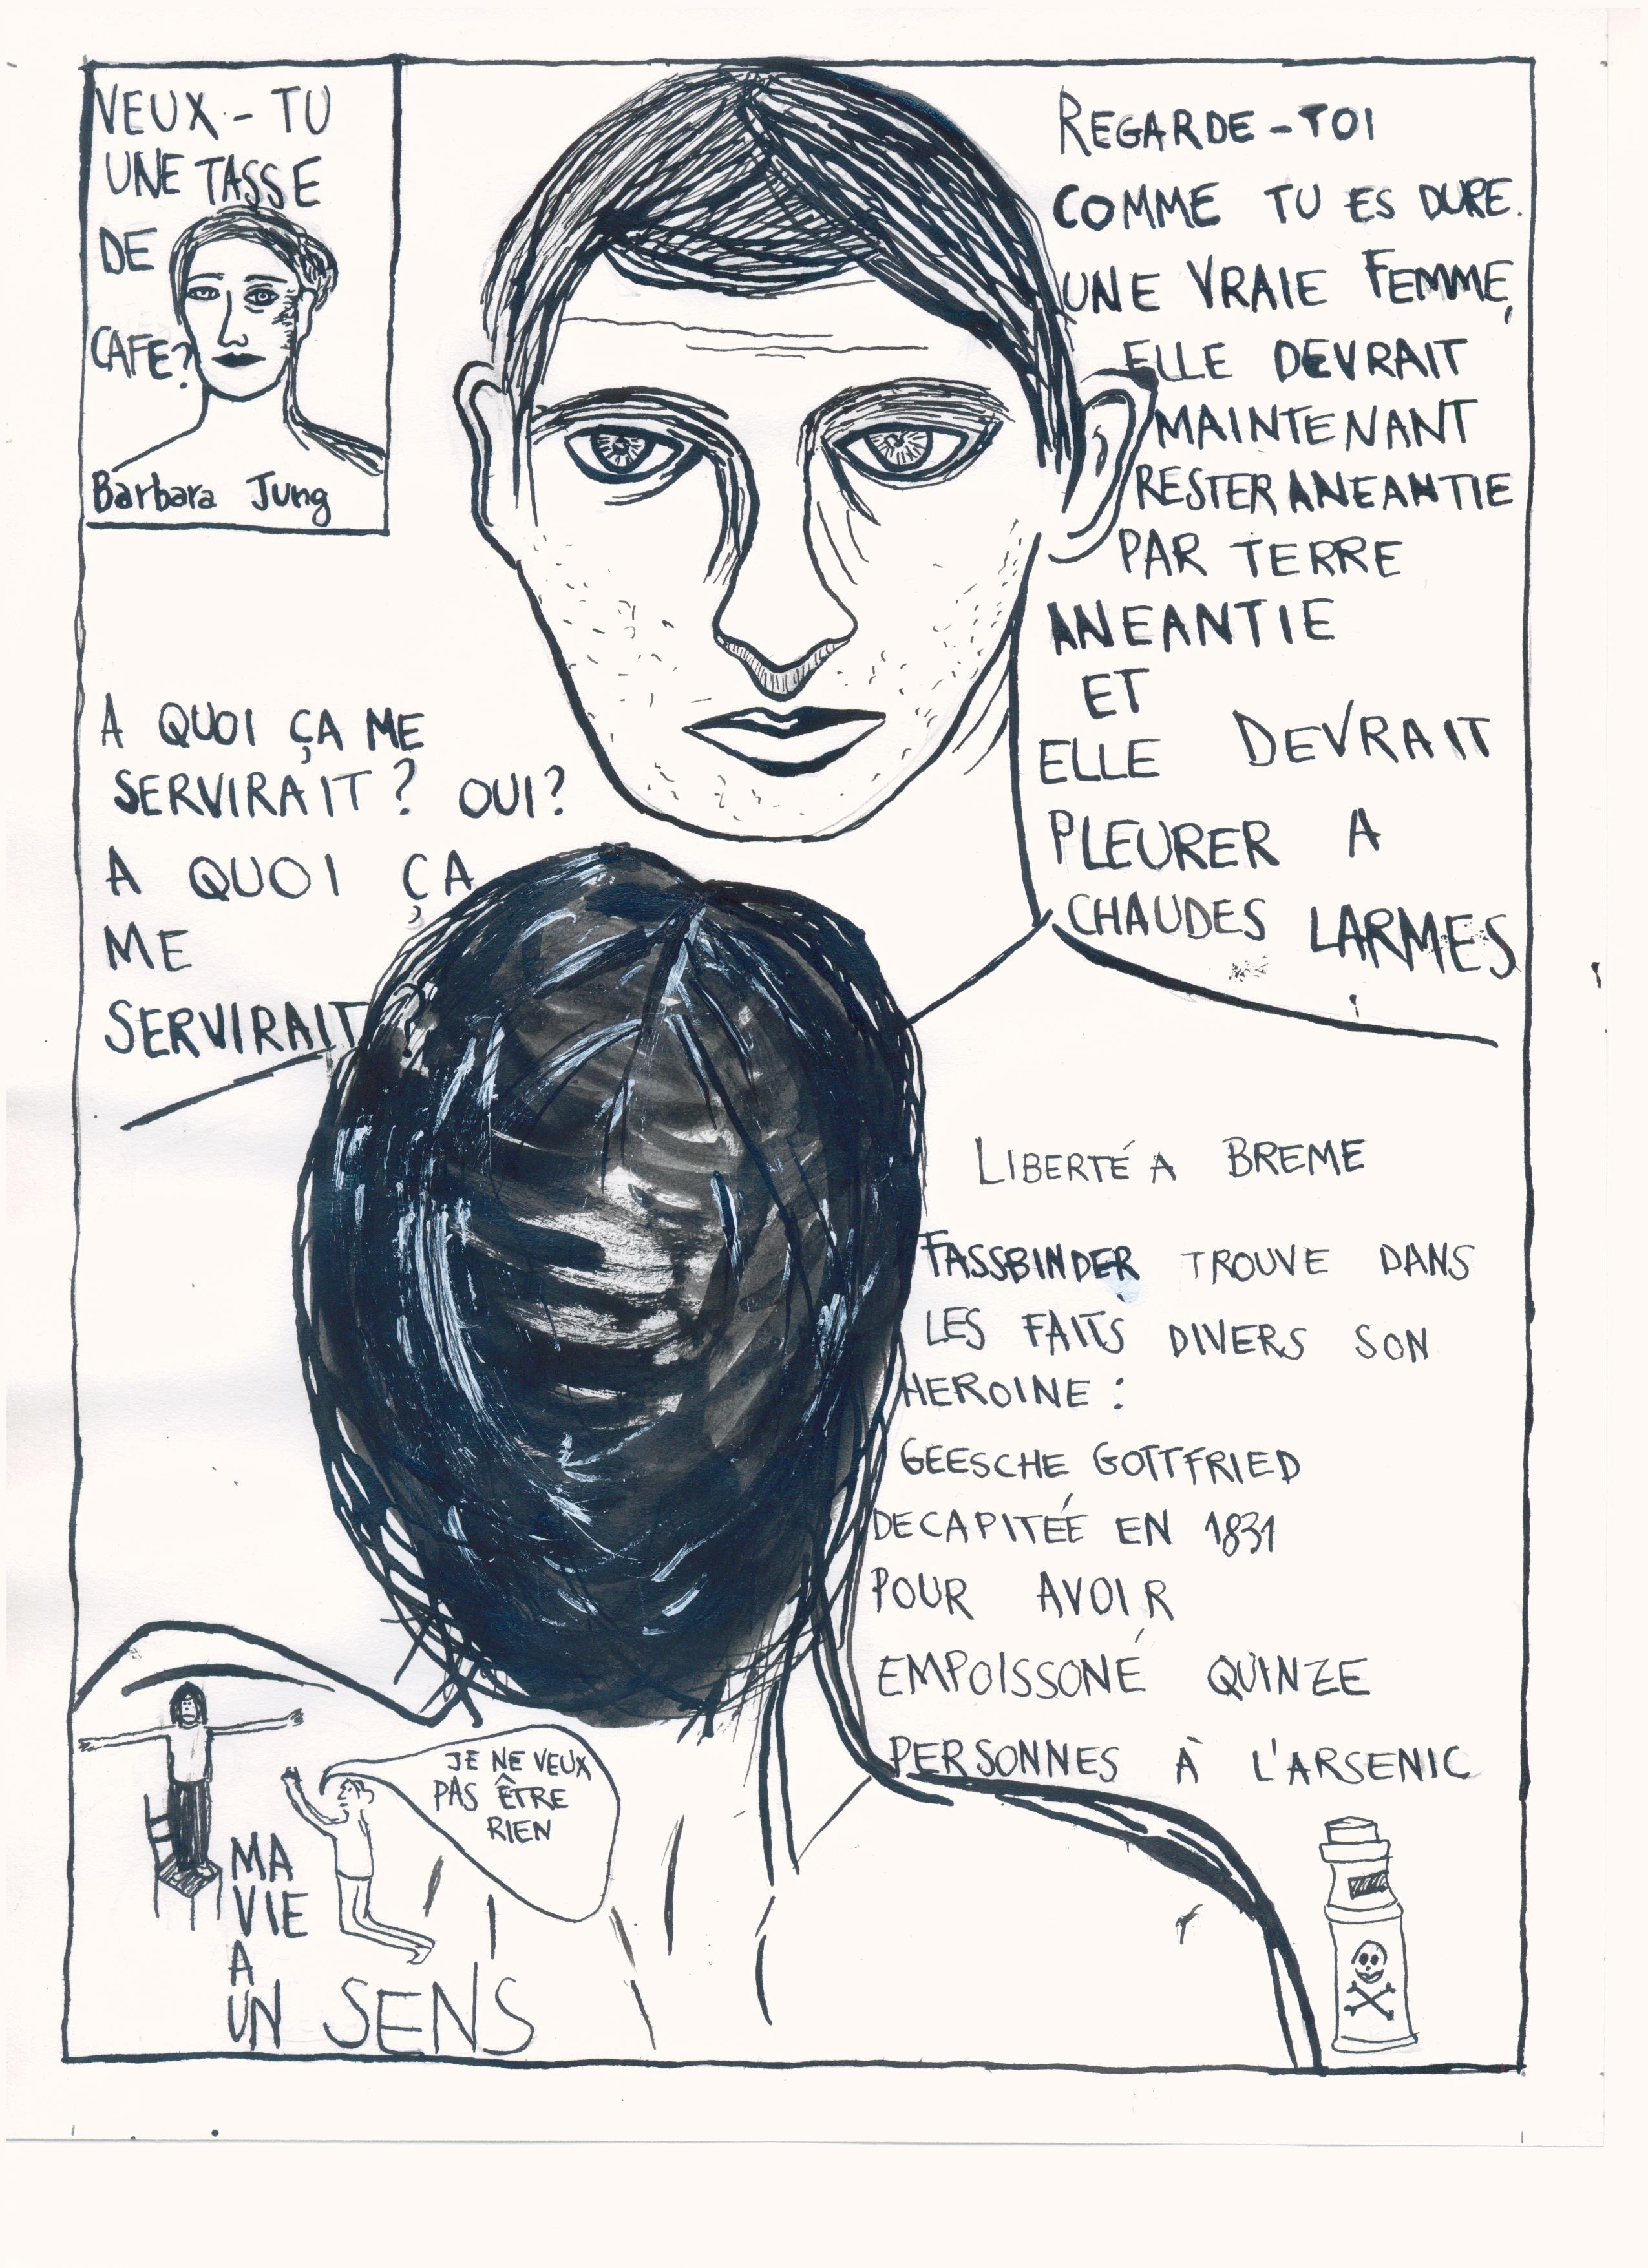 VEUX-TU
UNE TASSE
DE
CAFE?
Barbara Jung
REGARDE-TOI
COMME TU ES DURE.
UNE VRAIE FEMME,
ELLE DEVRAIT
MAINTENANT
RESTER ANEANTIE
PAR TERRE
ANEANTIE
ET
ELLE DEVRAIT
PLEURER A
CHAUDES LARMES
A QUOI ÇA ME
SERVIRAIT? OUI?
A QUOI ÇA
ME
SERVIRAIT?
LIBERTÉ A BREME
FASSBINDER TROUVE DANS
LES FAITS DIVERS SON
HEROINE :
GEESCHE GOTTFRIED
DECAPITÉE EN 1831
POUR AVOIR
EMPOISSONÉ QUINZE
PERSONNES À L'ARSENIC
JE NE VEUX
PAS ÊTRE
RIEN
MA
VIE
A
UN SENS